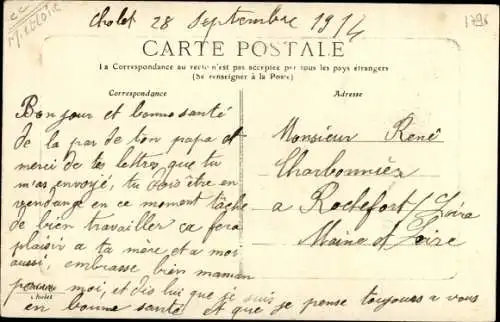 cc
Cholet 28 Septembre 1914
CARTE POSTALE
La Correspondance au verso n'est pas acceptée par tous les pays étrangers
(Se renseigner à la Poste)
Correspondance
Adresse
Bonjour et bonne santé
de la par de ton papa et
merci de tes lettres que tu
m'as envoyé, tu dois être en
vendange en ce moment tâche
de bien travailler ça fera
plaisir a ta mère et a moi
aussi, embrasse bien maman
pour moi, et dis lui que je suis
en bonne santé et que je pense toujours a vous
Cholet
Monsieur René
Charbonnier
a Rochefort s/Loire
Maine et Loire